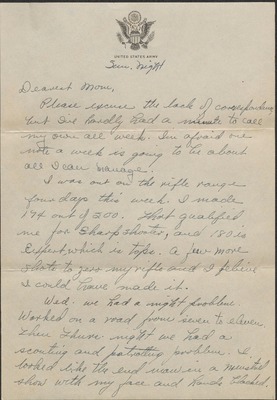 UNITED STATES ARMY
Sun. Night
Dearest Mom,
Please excuse the lack of correspondence
but I've hardly had a minute to call
my own all week. I'm afraid one
note a week is going to be about
all I can manage.
I was out on the rifle range
four days this week. I made
174 out of 200. That qualified
me for Sharpshooter, and 180 is
Expert, which is tops. A few more
shots to zero my rifle and I believe
I could have made it.
Wed. we had a night problem.
Worked on a road from seven to eleven.
Then Thurs. night we had a
scouting and patroling problem. I
looked like the end man in a minstrel
show with my face and hands blacked.